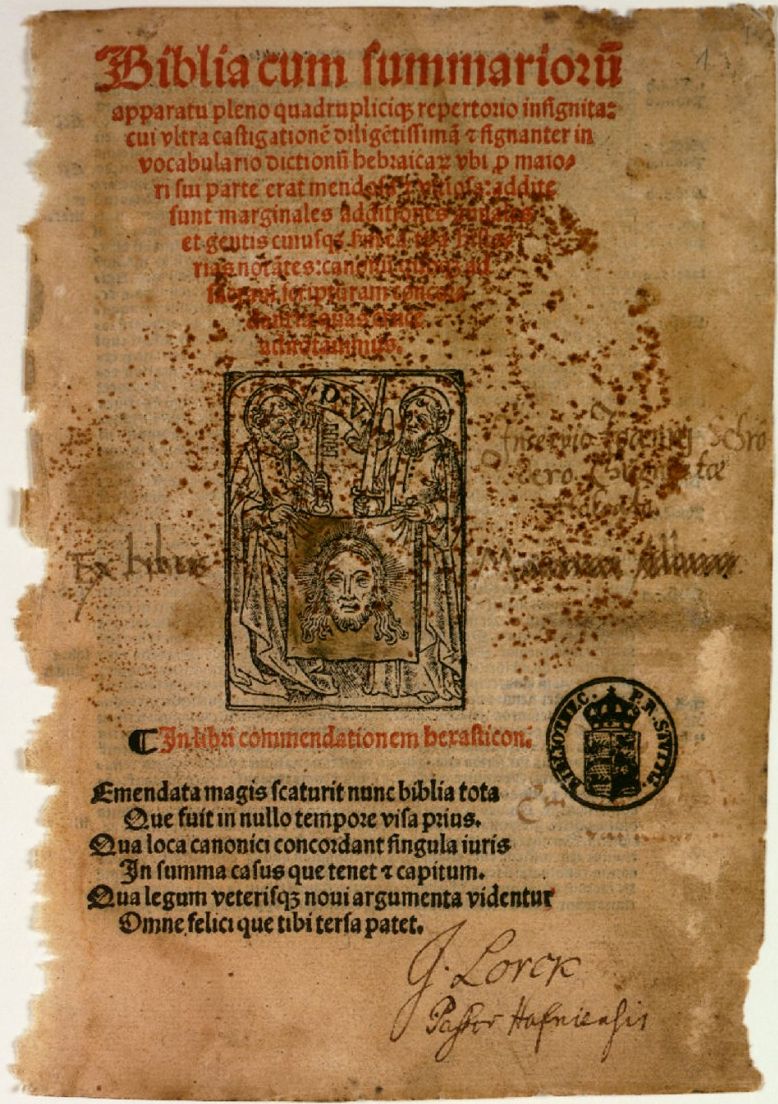 Biblia cum summariorū
apparatu pleno quadrupliciqꝫ repertorio insignita:
cui vltra castigationē diligētissimā ⁊ signanter in
vocabulario dictionū hebraicaꝝ vbi ꝓ maio⸗
ri sui parte erat mendosa ⁊ vitiosa: addite
sunt marginales additiones
et gentis cuiusqꝫ
riaꝝ notātes: canonibus
scripturam

adnotauimus.
P. V.
Ex Libris
¶ In libri commendationem hexasticon.
BIBLIOTHEC. P. R. SIVTTG.
Emendata magis scaturit nunc biblia tota
Que fuit in nullo tempore visa prius.
Qua loca canonici concordant singula iuris
In summa casus que tenet ⁊ capitum.
Qua legum veterisqꝫ noui argumenta videntur
Omne felici que tibi tersa patet.
J. Lorck
Pastor Hafniensis